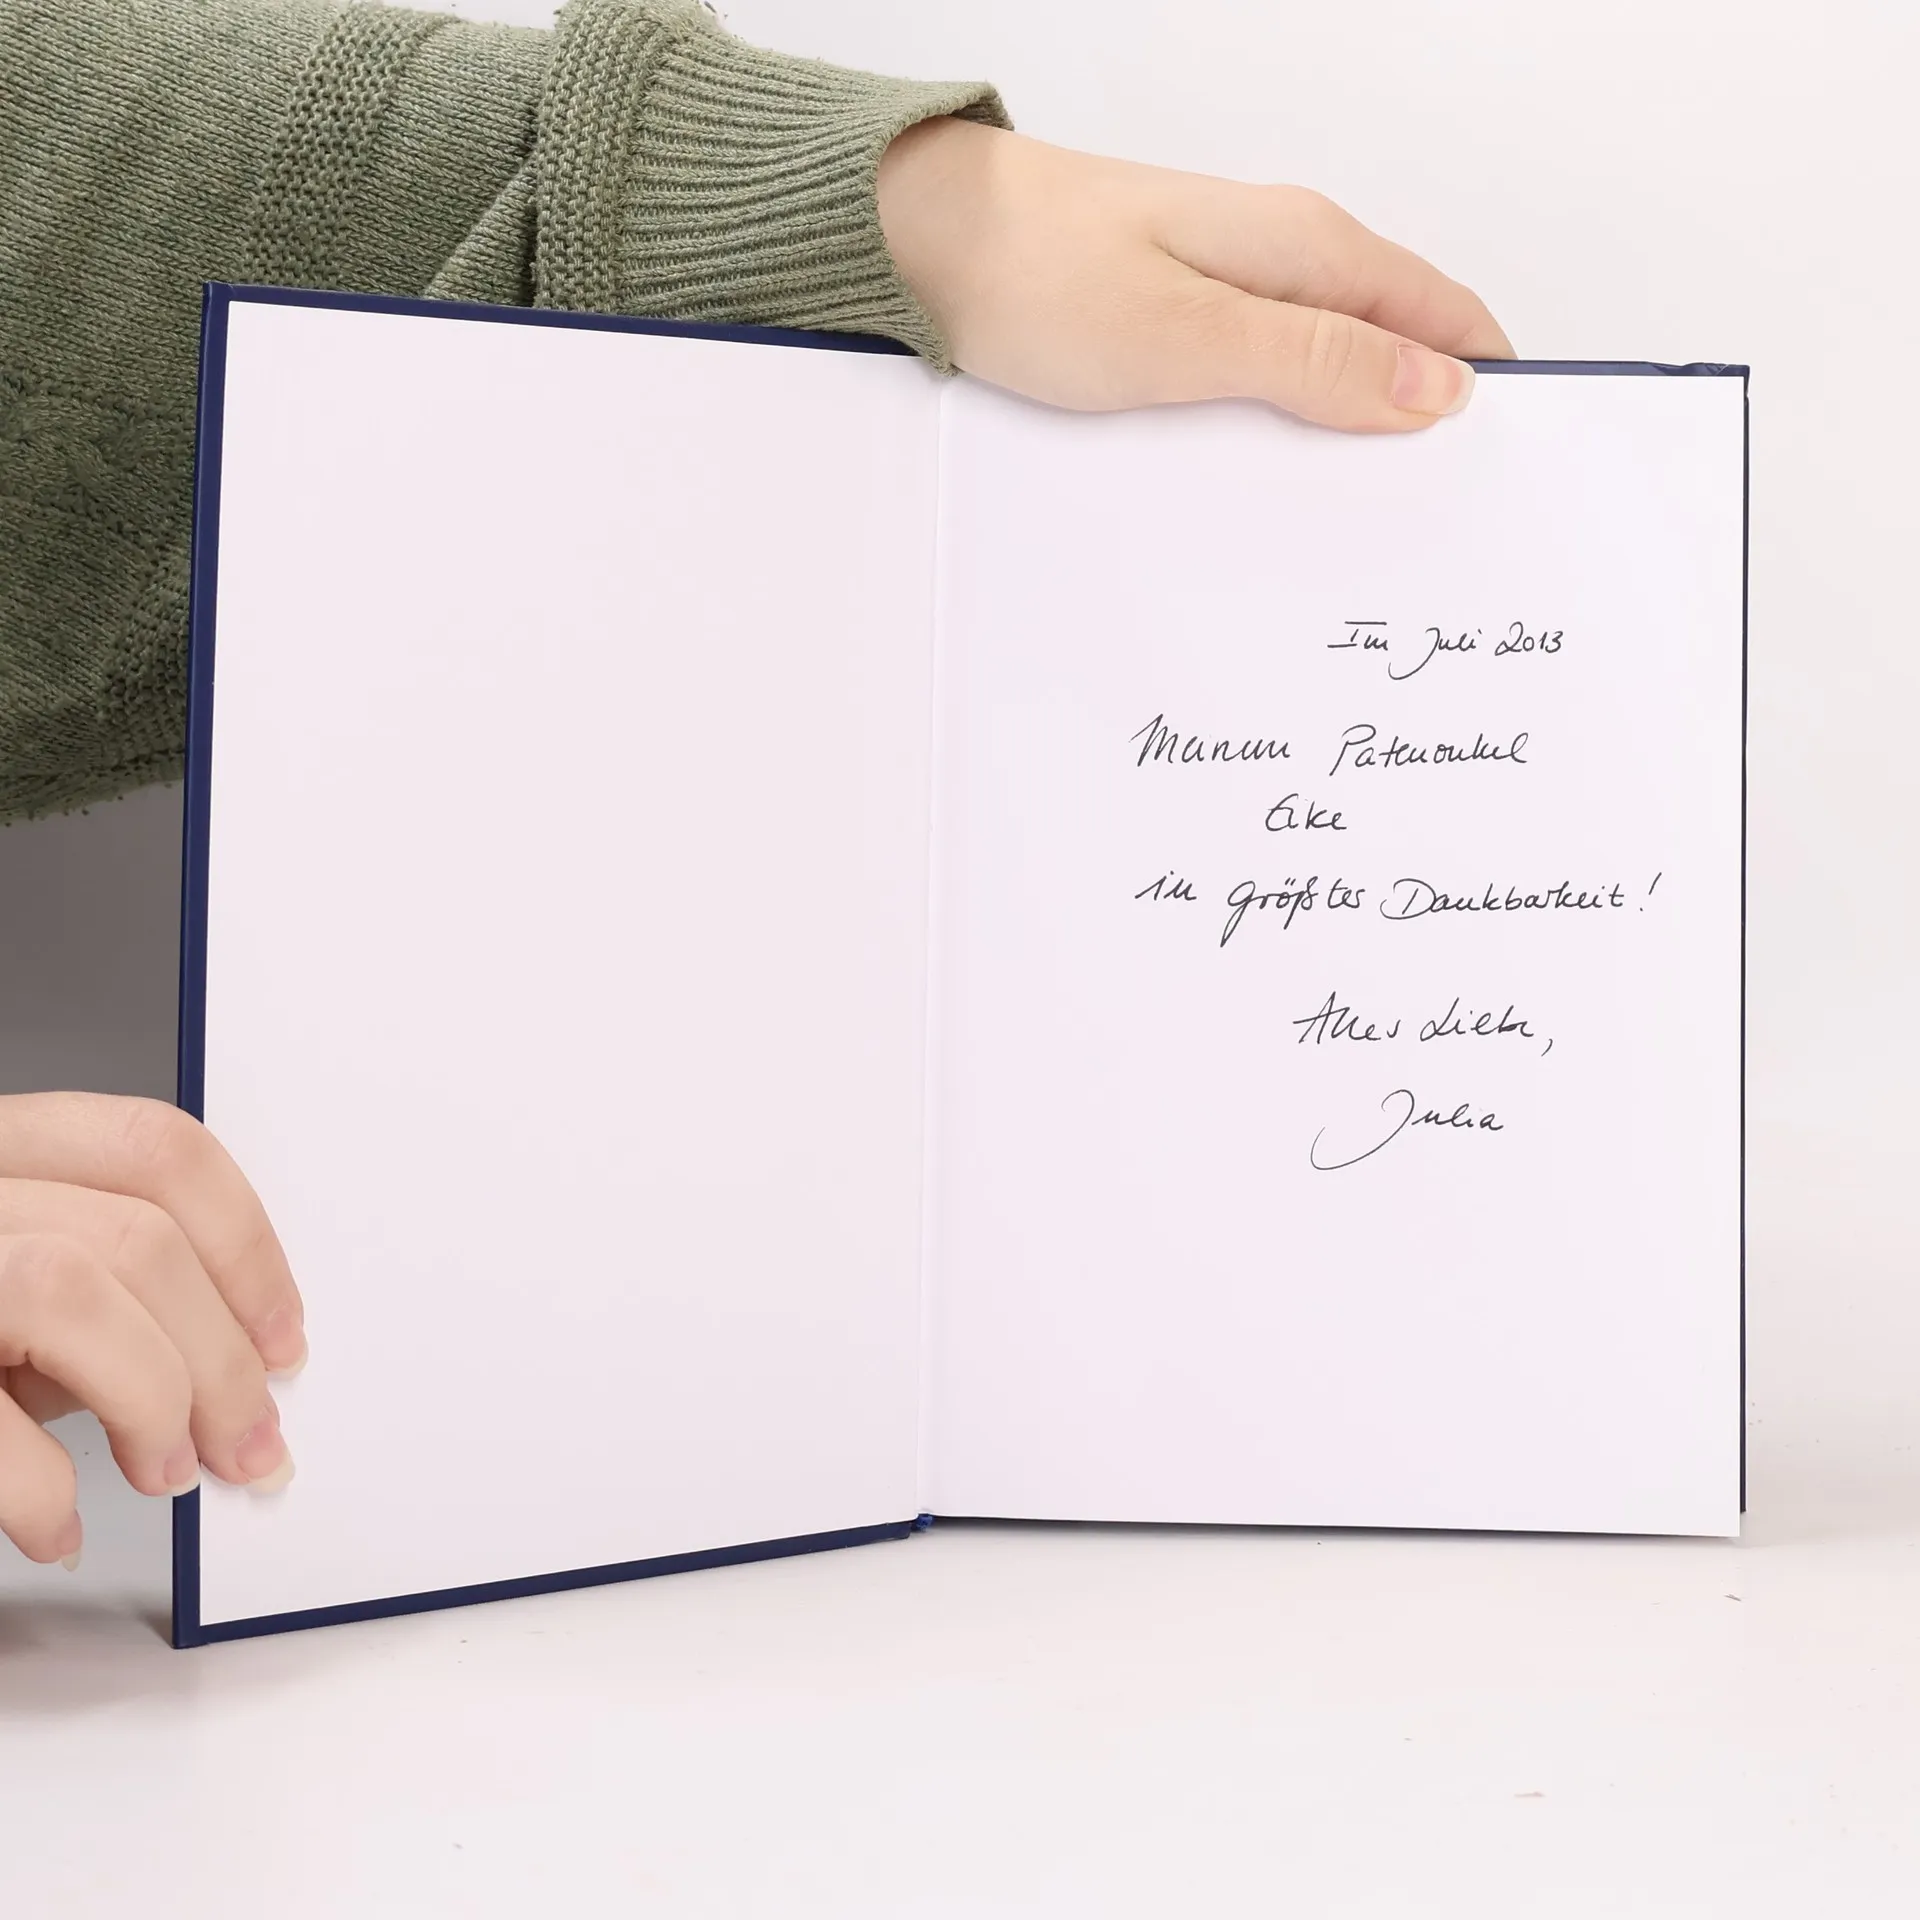 Im Juli 2013
Meinem Patenonkel
Eike
in größter Dankbarkeit!
Alles Liebe,
Julia